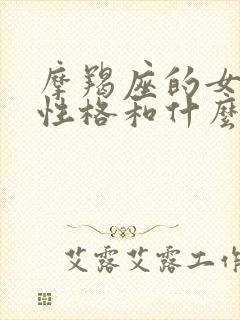 摩羯座的女
性格和什麼
艾露艾露工作